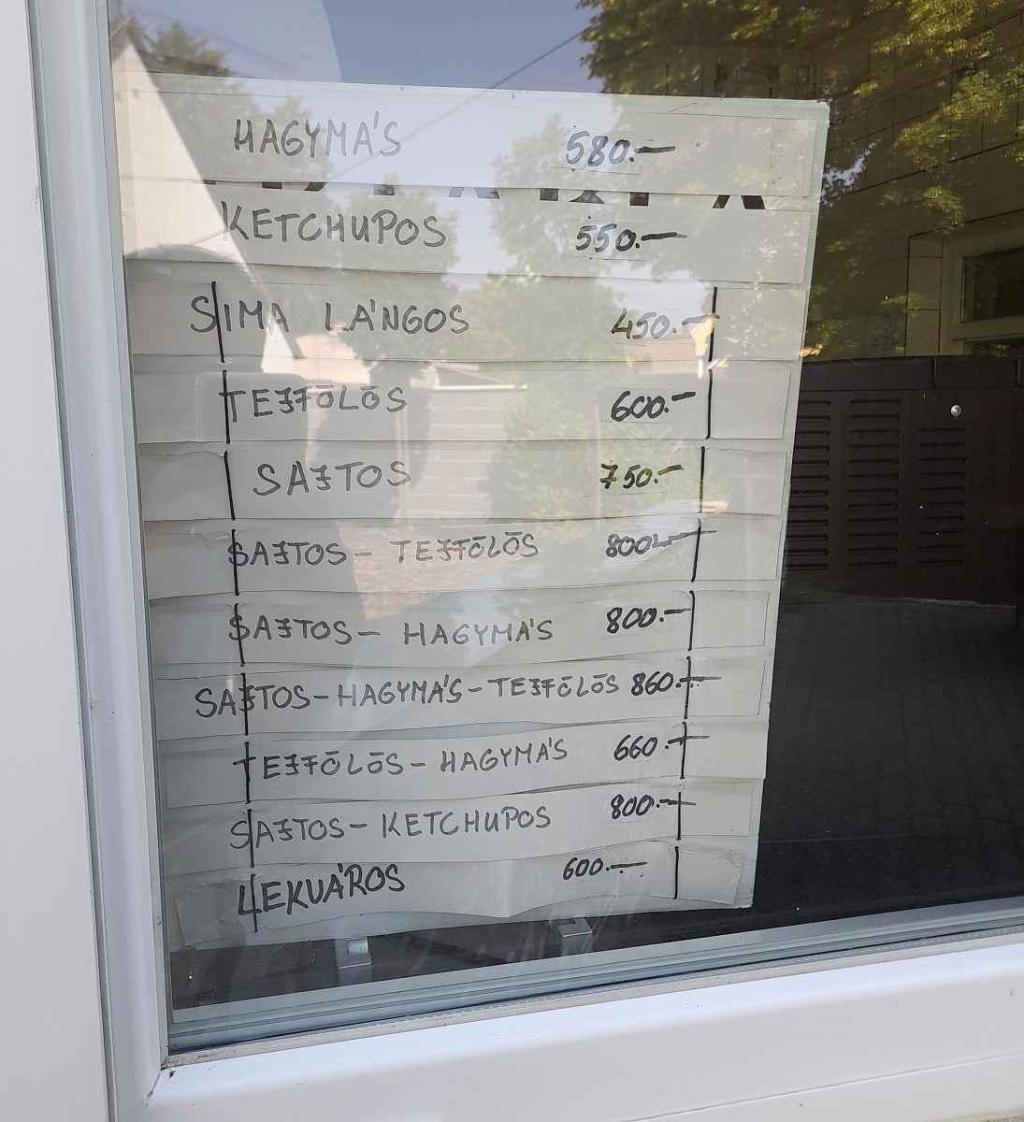 HAGYMÁS 580.-
KETCHUPOS 550.-
SIMA LÁNGOS 450.-
TEJFŌLŌS 600.-
SAJTOS 750.-
SAJTOS - TEJFŌLŌS 800.-
SAJTOS - HAGYMÁS 800.-
SAJTOS - HAGYMÁS - TEJFŌLŌS 860.-
TEJFŌLŌS - HAGYMÁS 660.-
SAJTOS - KETCHUPOS 800.-
LEKVÁROS 600.-